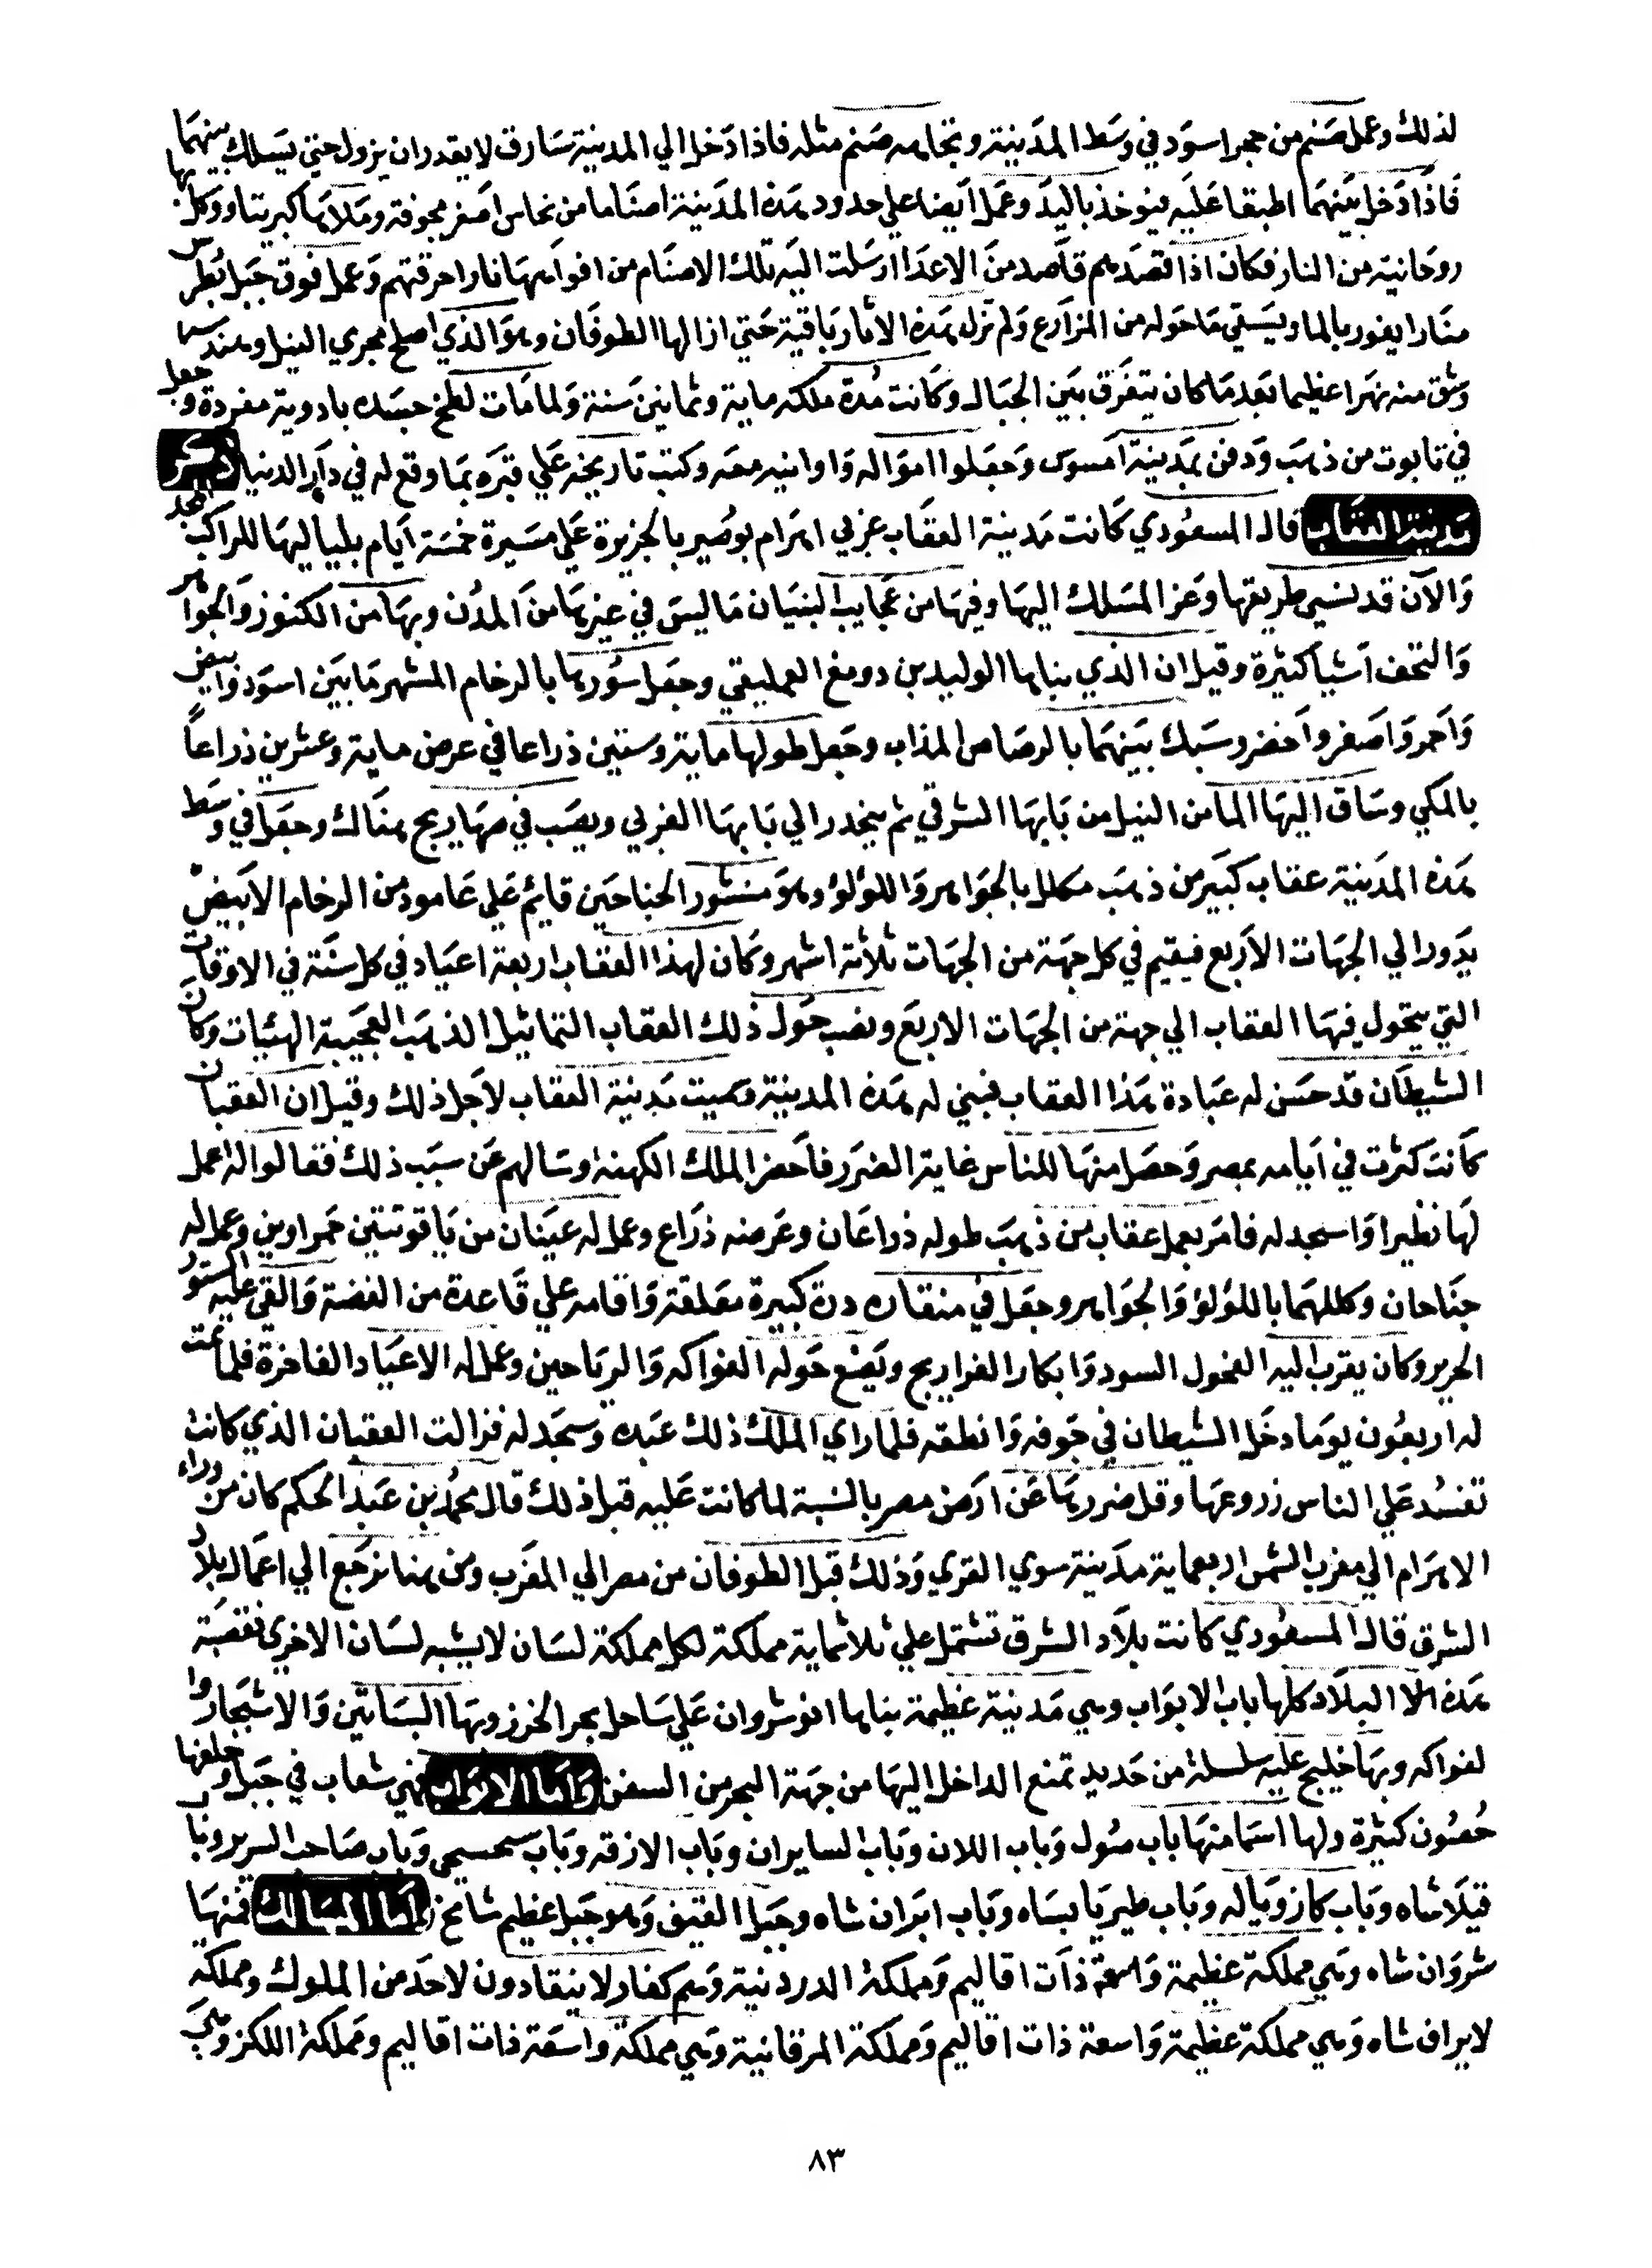 لذلك وعمل صنم من حجر اسود في وسط المدينة وتجاهه صنم مثله فاذا دخل الي المدينة سارق لا يقدر ان يزول حتي يسلك بينهما
فاذا دخل بينهما اطبقا عليه فيوخذ باليد وعمل ايضا علي حدود هذه المدينة اصناما من نحاس اصفر مجوفة وملاها كبريتا ووكل بها
روحانية من النار فكان اذا قصدهم قاصد من الاعدا ارسلت اليه تلك الاصنام من افواهها نارا احرقتهم وعمل فوق جبل بطرس
منارا يفور بالما ويسقي ما حوله من المزارع ولم تزل هذه الاثار باقية حتي ازالها الطوفان وهو الذي اصلح مجري النيل وهندسها
وشق منه نهرا عظيما بعد ما كان يتفرق بين الجبال وكانت مدة ملكه ماية وثمانين سنة ولما مات لطخ جسده بادوية مفردة وجعل
في تابوت من ذهب ودفن بمدينة امسوس وجعلوا امواله واوانيه معه وكتب تاريخه علي قبره بما وقع له في دار الدنيا ذكر
مدينة العقاب قال المسعودي كانت مدينة العقاب غربي اهرام بوصير بالجزيرة علي مسيرة خمسة ايام بلياليها للراكب المجد
والآن قد نسي طريقها وعز المسلك اليها وفيها من عجايب البنيان ما ليس في غيرها من المدن وبها من الكنوز والجواهر
والتحف اشيا كثيرة وقيل ان الذي بناها الوليد بن دومغ العمليقي وجعل سورها بالرخام المشهر ما بين اسود وابيض
واحمر واصفر واخضر وسبك بينهما بالرصاص المذاب وجعل طولها ماية وستين ذراعا في عرض ماية وعشرين ذراعاً
بالمكي وساق اليها الما من النيل من بابها الشرقي ثم ينحدر الي بابها الغربي ويصب في صهاريج هناك وجعل في وسط
هذه المدينة عقاب كبير من ذهب مكلل بالجواهر واللؤلؤ وهو منشور الجناحين قايم علي عامود من الرخام الابيض
يدور الي الجهات الاربع فيقيم في كل جهة من الجهات ثلاثة اشهر وكان لهذا العقاب اربعة اعياد في كل سنة في الاوقات
التي يتحول فيها العقاب الي جهة من الجهات الاربع ونصب حول ذلك العقاب التماثيل الذهب العجيبة الهئيات وكان
الشيطان قد حسن له عبادة هذا العقاب فبني له هذه المدينة وسميت مدينة العقاب لاجل ذلك وقيل ان العقبان
كانت كثرت في ايامه بمصر وحصل منها للناس غاية الضرر فاحضر الملك الكهنة وسالهم عن سبب ذلك فقالوا له اعمل
لها نظيرا واسجد له فامر بعمل عقاب من ذهب طوله ذراعان وعرضه ذراع وعمل له عينان من ياقوتتين حمراوين وعمل له
جناحان وكللهما باللؤلؤ والجواهر وجعل في منقاره درة كبيرة معلقة واقامه علي قاعدة من الفضة والقي عليه الستور
الحرير وكان يقرب اليه الفحول السود وابكار الفراريج ويضع حوله الفواكه والرياحين وعمل له الاعياد الفاخرة فلما تمت
له اربعون يوما دخل الشيطان في جوفه وانطقه فلما راي الملك ذلك عبده وسجد له فزالت العقبان الذي كانت
تفسد علي الناس زروعها وقل ضررها عن ارض مصر بالنسبة لما كانت عليه قبل ذلك قال محمد بن عبد الحكم كان من وراء
الاهرام الي مغرب الشمس اربعماية مدينة سوي القري وذلك قبل الطوفان من مصر الي المغرب ومن هنا نرجع الي اعمال بلاد
الشرق قال المسعودي كانت بلاد الشرق تشتمل علي ثلاثماية مملكة لكل مملكة لسان لا يشبه لسان الاخري فقصبة
هذه البلاد كلها باب الابواب وهي مدينة عظيمة بناها انوشروان علي ساحل بحر الخزر وبها البساتين والاشجار وا
لفواكه وبها خليج عليه سلسلة من حديد تمنع الداخل اليها من جهة البحر من السفن واما الابواب فهي شعاب في جبل وخلفها
حصون كثيرة ولها اسما منها باب صول وباب اللان وباب السايران وباب الازقه وباب وباب صاحب السرير وباب
قيلا شاه وباب كازويا له وباب طبر يا بساه وباب ايران شاه وجبل الفيق وهو جبل عظيم شامخ اما الممالك فمنها
شروان شاه وهي مملكة عظيمة واسعة ذات اقاليم ومملكة الدردنية وهم كفار لا ينقادون لاحد من الملوك ومملكة
لايران شاه وهي مملكة عظيمة واسعة ذات اقاليم ومملكة المرقانية وهي مملكة واسعة ذات اقاليم ومملكة اللكز وهي
٨٣